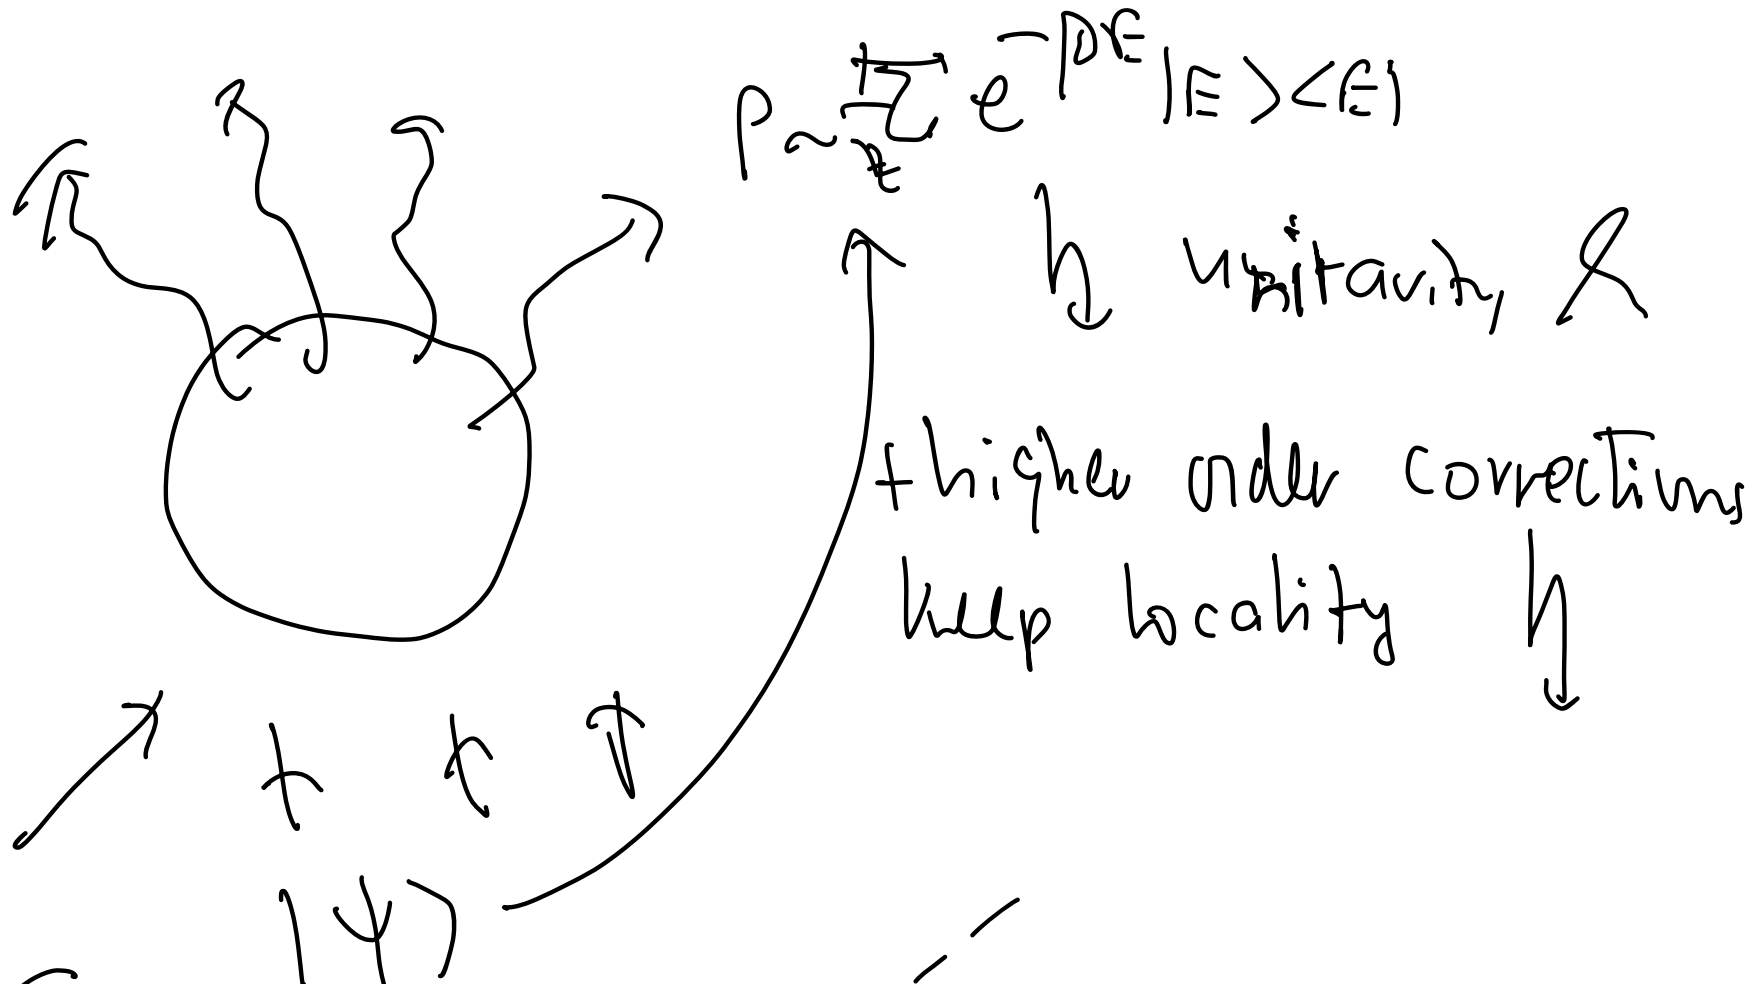 ρ ~ Σ e^{-βE} |E><E|
unitarity &
+ higher order corrections
keep locality
|ψ>